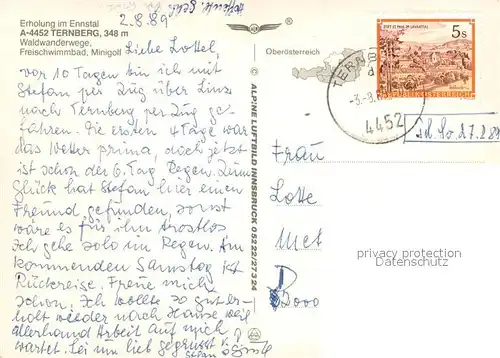 Erholung im Ennstal
A-4452 TERNBERG, 348 m
Waldwanderwege,
Freischwimmbad, Minigolf
2.8.89
Oberösterreich
ALPINE LUFTBILD INNSBRUCK 05222/27324
STIFT ST. PAUL IM LAVANTTAL
5s
REPUBLIK ÖSTERREICH
TERNBERG
-3.-8.
4452
Liebe Lottel,
vor 10 Tagen bin ich mit
Stefan per Zug über Linz
nach Ternberg per Zug ge-
fahren. Die ersten 4 Tage war
das Wetter prima, doch jetzt
ist schon der 6. Tag Regen. Zum
Glück hat Stefan hier einen
Freund gefunden, sonst
wäre es für ihn trostlos
Ich gehe solo im Regen. Am
kommenden Samstag ist
Rückreise. Freue mich
schon. Ich wollte so gut er-
holt wieder nach Hause weil
allerhand Arbeit auf mich
wartet. Sei um lieb gegrüsst v.
Stefan
Frau
Lotte
Met
8000
So. 27.8.89
privacy protection
Datenschutz